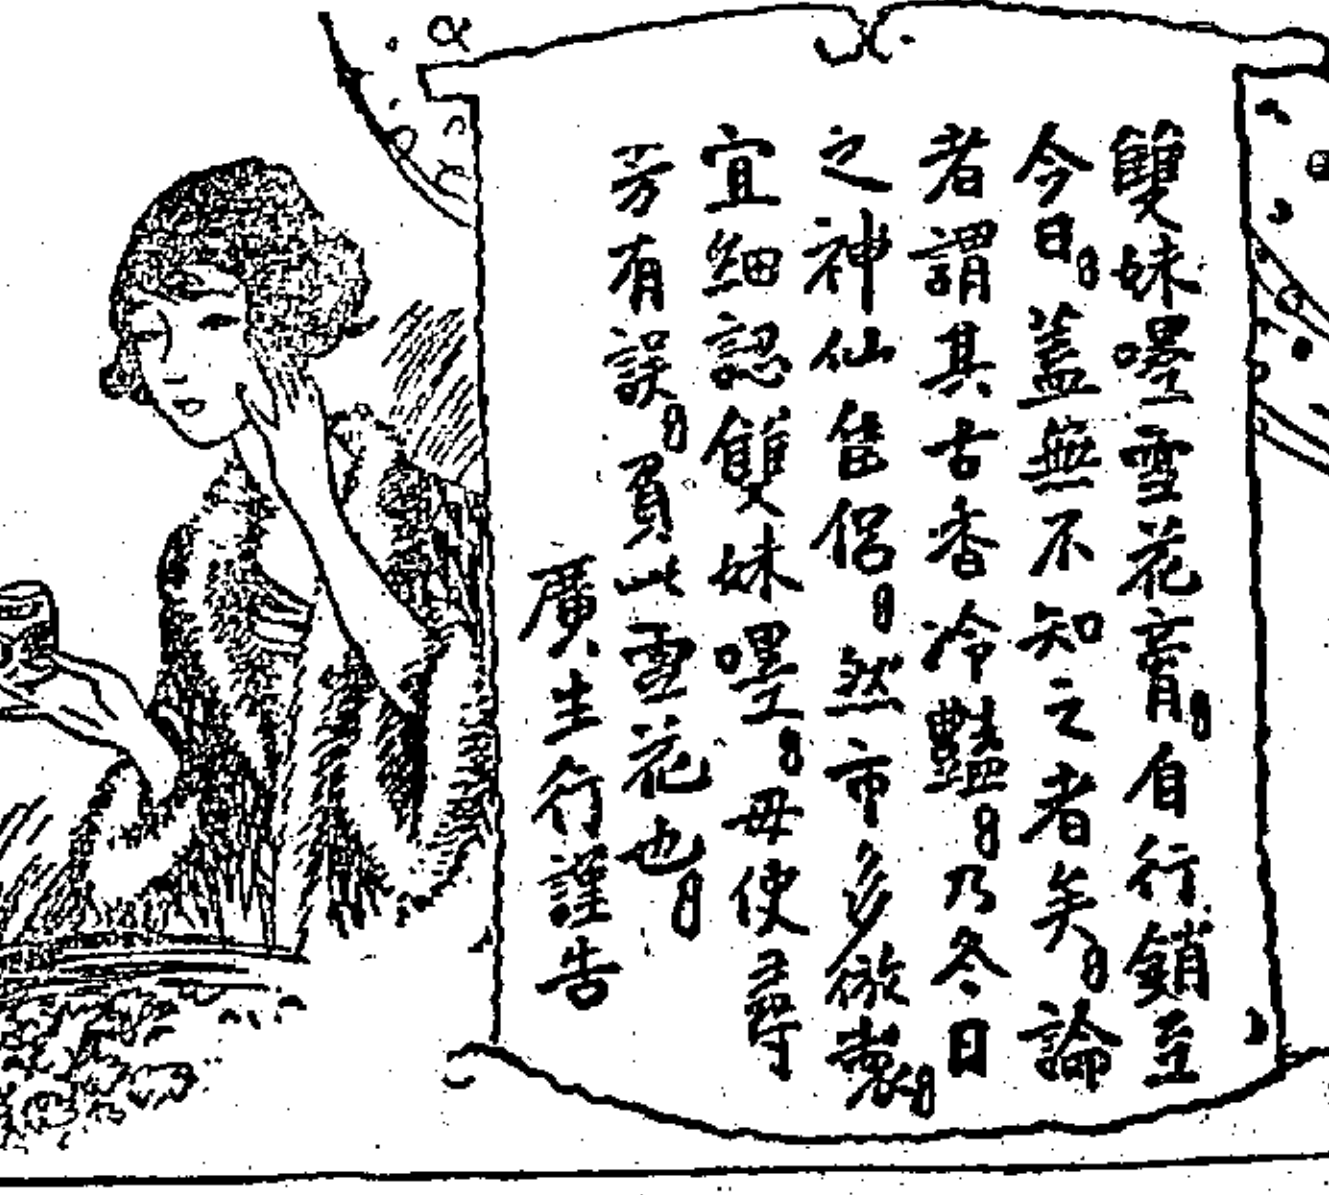 雙妹嚜雪花膏。自行銷至
今日。蓋無不知之者矣。論
者謂其古香冷豔。乃冬日
之神仙侶。然市多倣製。
宜細認雙妹嚜。毋使尋
芳有誤。負此雪花也。
廣生行謹告